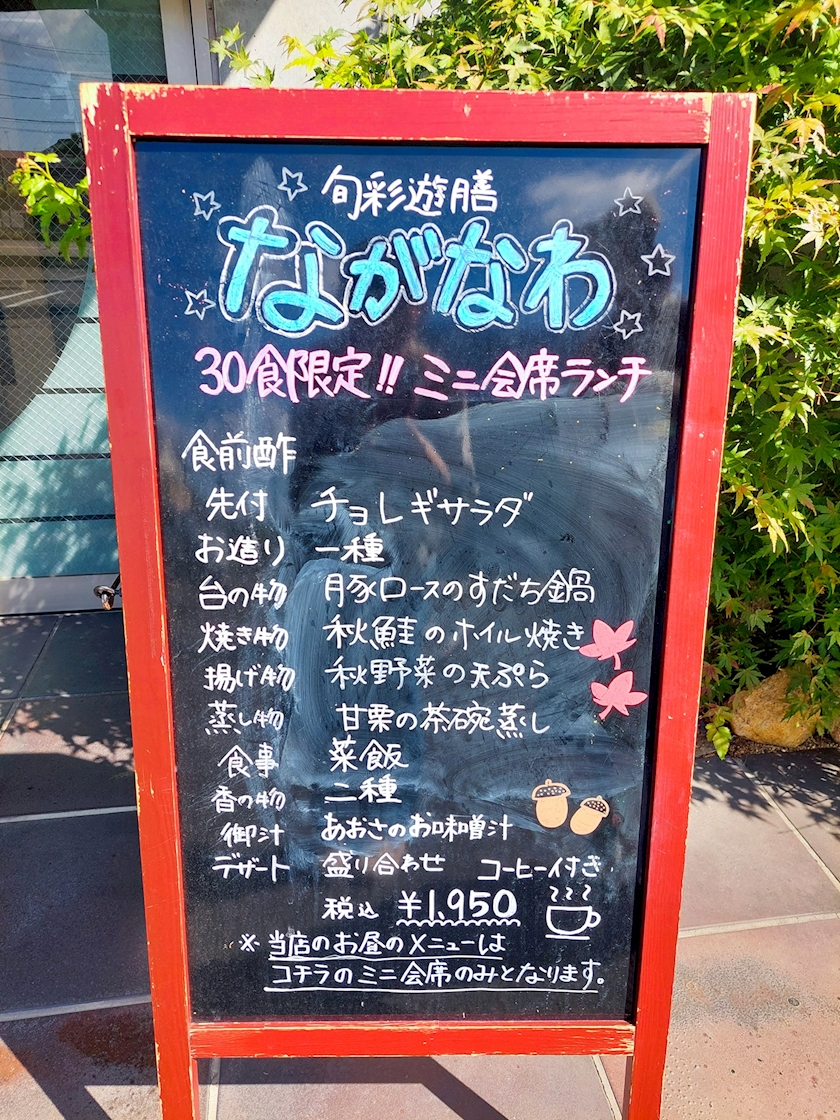 旬彩遊膳
ながなわ
30食限定!! ミニ会席ランチ
食前酢
先付 チョレギサラダ
お造り 一種
台の物 豚ロースのすだち鍋
焼き物 秋鮭のホイル焼き
揚げ物 秋野菜の天ぷら
蒸し物 甘栗の茶碗蒸し
食事 菜飯
香の物 二種
御汁 あおさのお味噌汁
デザート 盛り合わせ コーヒー付き
税込 ¥1,950
※ 当店のお昼のメニューは
コチラのミニ会席のみとなります。